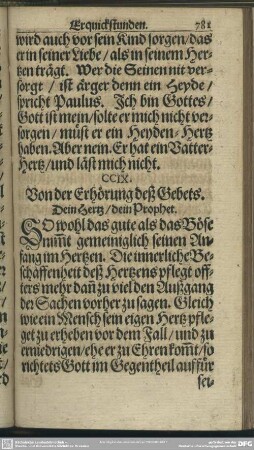 Erquickstunden. 781
wird auch vor sein Kind sorgen/das
er in seiner Liebe/als in seinem Her-
tzen trägt. Wer die Seinen nit ver-
sorgt/ist ärger denn ein Heyde/
spricht Paulus. Ich bin Gottes/
Gott ist mein/solte er mich nicht ver-
sorgen/müst er ein Heyden-Hertz
haben. Aber nein. Er hat ein Vatter-
Hertz/und läst mich nicht.
CCIX.
Von der Erhörung deß Gebets.
Dein Hertz/dein Prophet.
SO wohl das gute als das Böse
nimt gemeiniglich seinen An-
fang im Hertzen. Die innerliche Be-
schaffenheit deß Hertzens pflegt öff-
ters mehr dañ zu viel den Außgang
der Sachen vorher zu sagen. Gleich
wie ein Mensch sein eigen Hertz pfle-
get zu erheben vor dem Fall/und zu
erniedrigen/ehe er zu Ehren kom̃t/so
richtets Gott im Gegentheil auf für
sei-